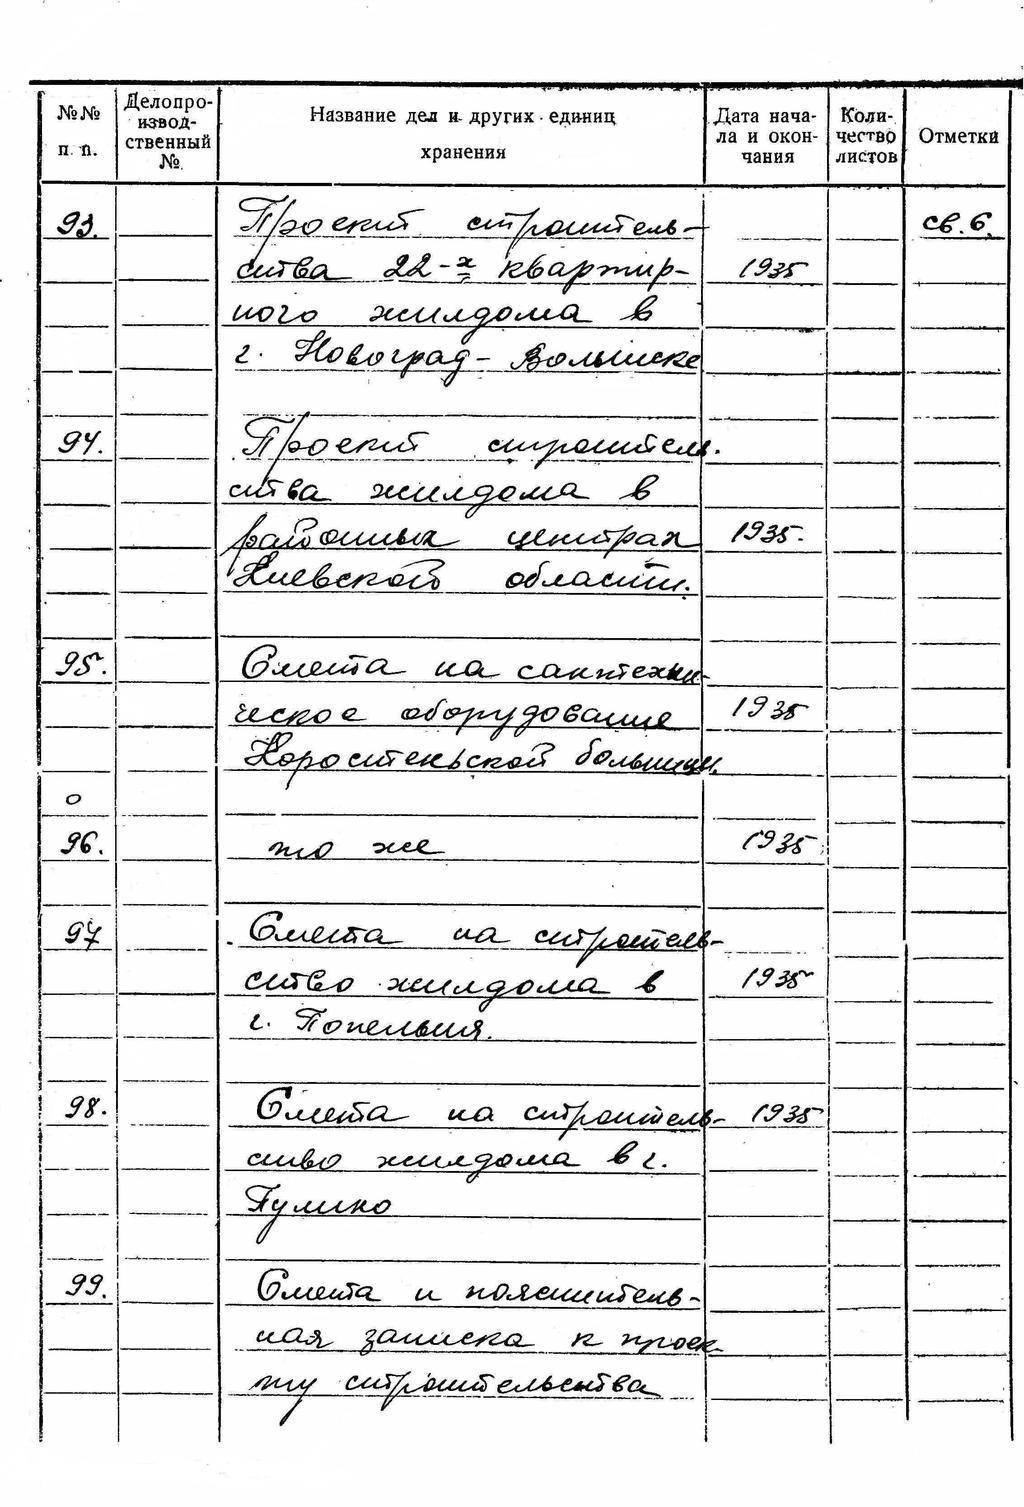 №№ п. п.
Делопро-
извод-
ственный
№
Название дел и других единиц
хранения
Дата нача-
ла и окон-
чания
Коли-
чество
листов
Отметки
93. Проект строитель- св. 6.
ства 22-х квартир- 1935
ного жилдома в
г. Новоград-Волынске
94. Проект строитель.
ства жилдома в
районных центрах 1935.
Киевской области.
95. Смета на сантехни-
ческое оборудование 1935
Коростеньской больницы.
о
96. то же 1935
97 Смета на строитель-
ство жилдома в 1935
г. Попельня.
98. Смета на строитель- 1935
ство жилдома в г.
Пулино
99. Смета и пояснитель-
ная записка к проек-
ту строительства